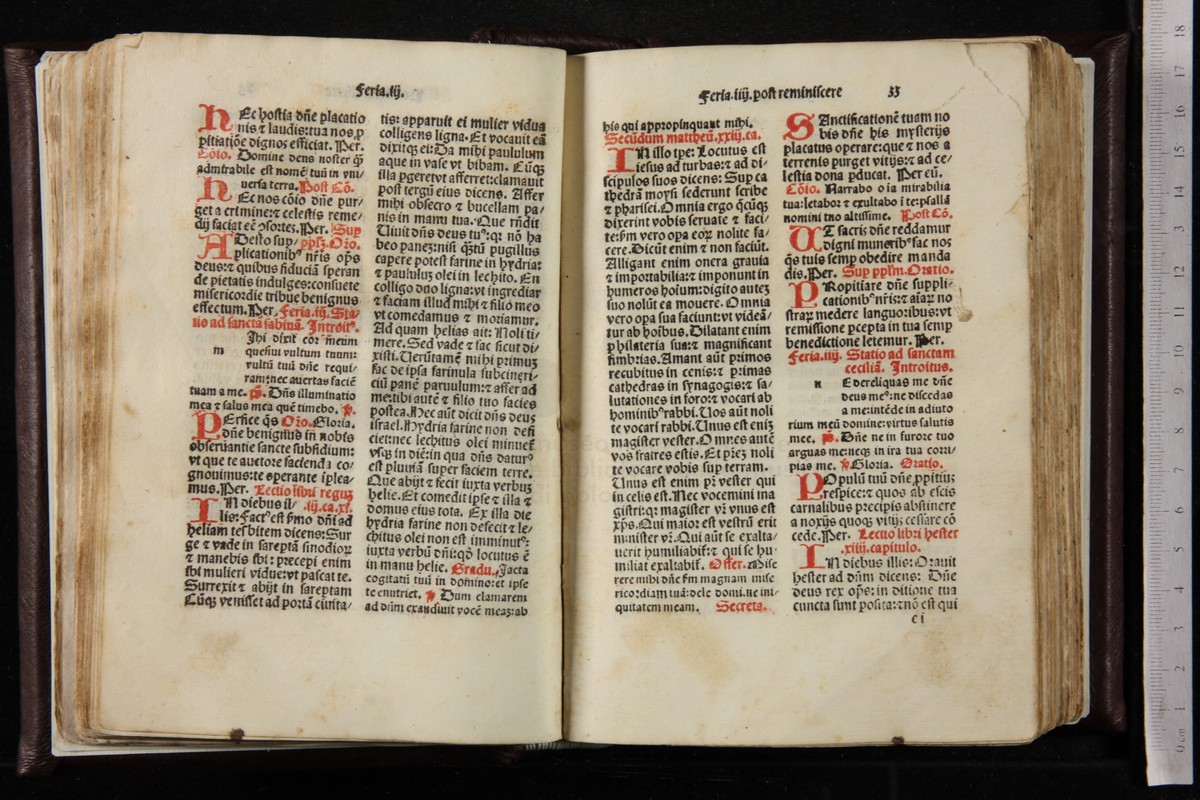 Feria.iij.
HEc hostia dñe placatio
nis ⁊ laudis: tua nos, p
pitiatiõe dignos efficiat. Per.
Cõio. Domine deus noster q̃
admirabile est nomẽ tuũ in vni/
uersa terra. Post Cõ.
HEc nos cõio dñe pur/
get a crimine: ⁊ celestis reme/
dij faciat eẽ ꝯsortes. Per. Sup
ADesto sup/ pp̃lz. Oŕo.
plicationib⁹ nr̃is op̃s
deus: ⁊ quibus fiduciã speran
de pietatis indulges: consuete
misericordie tribue benignus
effectum. Per. Feria.iij. Sta/
tio ad sanctã sabinã. Introit⁹.
Ihi dixit cor meum
m quesiui vultum tuum:
vultũ tuũ dñe requi/
ram: nec auertas faciẽ
tuam a me. ps. Dñs illuminatio
mea ⁊ salus mea quẽ timebo. v.
PErfice q̃s Oŕo. Gloria.
dñe benignus in nobis
obseruantie sancte subsidium:
vt que te auctore facienda co/
gnouimus: te operante iplea/
mus. Per. Lectio libri reguz
IN diebus il/ .iij.ca.xř.
lis: Fact⁹ est s̃mo dñi ad
heliam tesbitem dicens: Sur
ge ⁊ vade in sareptã sinodioꝝ
⁊ manebis ibi: precepi enim
ibi mulieri vidue: vt pascat te.
Surrexit ⁊ abijt in sareptam
Cũq̃ venisset ad portã ciuita/
tis: apparuit ei mulier vidua
colligens ligna. Et vocauit eã
dixitq̃ ei: Da mihi paululum
aque in vase vt bibam. Cũq̃
illa pgeret vt afferret: clamauit
post tergũ eius dicens. Affer
mihi obsecro ⁊ bucellam pa/
nis in manu tua. Que rñdit
Viuit dñs deus tu⁹: q: nõ ha
beo panez: nisi q̃ztũ pugillus
capere potest farine in hydria:
⁊ paululuz olei in lechito. En
colligo duo ligna: vt ingrediar
⁊ faciam illud mihi ⁊ filio meo
vt comedamus ⁊ moriamur.
Ad quam helias ait: Noli ti/
mere. Sed vade ⁊ fac sicut di/
xisti. Verũtamẽ mihi primuz
fac de ipsa farinula subcineri/
ciũ panẽ paruulum: ⁊ affer ad
me: tibi autẽ ⁊ filio tuo facies
postea. Hec aũt dicit dñs deus
israel. Hydria farine non defi
ciet: nec lechitus olei minuet̃
vsq̃ in diẽ: in qua dñs datur⁹
est pluuiã super faciem terre.
Que abijt ⁊ fecit iuxta verbuz
helie. Et comedit ipse ⁊ illa ⁊
domus eius tota. Ex illa die
hydria farine non defecit ⁊ le/
chitus olei non est imminut⁹:
iuxta verbũ dñi: q̃ locutus ẽ
in manu helie. Gradu. Jacta
cogitatũ tuũ in domino: et ipse
te enutriet. v. Dum clamarem
ad dñm exaudiuit vocẽ meaz: ab
Feria.iiij.post reminiscere 33
his qui appropinquant mihi.
Secũdum mattheũ.xxiij.ca.
IN illo tpe: Locutus est
iesus ad turbas: ⁊ ad di/
scipulos suos dicens: Sup ca
thedrã moysi sederunt scribe
⁊ pharisei. Omnia ergo q̃cũq̃
dixerint vobis seruate ⁊ faci/
te: s̃m vero opa eoꝝ nolite fa/
cere. Dicũt enim ⁊ non faciũt.
Alligant enim onera grauia
⁊ importabilia: ⁊ imponunt in
humeros hoium: digito autez
suo nolũt ea mouere. Omnia
vero opa sua faciunt: vt videã/
tur ab hoibus. Dilatant enim
philateria sua: ⁊ magnificant
fimbrias. Amant aũt primos
recubitus in cenis: ⁊ primas
cathedras in synagogis: ⁊ sa/
lutationes in foro: ⁊ vocari ab
hominib⁹ rabbi. Uos aũt noli
te vocari rabbi. Unus est eniz
magister vester. Omnes autẽ
vos fratres estis. Et pr̃ez noli
te vocare vobis sup terram.
Unus est enim pr̃ vester qui
in celis est. Nec vocemini ma
gistri: q: magister vr̃ vnus est
xp̃s. Qui maior est vestrũ erit
minister vr̃. Qui aũt se exalta/
uerit humiliabit̃: ⁊ qui se hu/
miliat exaltabit̃. Offer. Mise
rere mihi dñe s̃m magnam mise
ricordiam tuã: dele domine ini/
quitatem meam. Secreta.
SAnctificationẽ tuam no
bis dñe his mysterijs
placatus operare: que ⁊ nos a
terrenis purget vitijs: ⁊ ad ce/
lestia dona pducat. Per eũ.
Cõio. Narrabo oĩa mirabilia
tua: letabor ⁊ exultabo ĩ te: psallã
nomini tuo altissime. Post Cõ.
UT sacris dñe reddamur
digni muneribus fac nos
q̃s tuis semp obedire manda
dis. Per. Sup pplm. Oratio.
PRopitiare dñe suppli/
cationib⁹ nr̃is: ⁊ aĩaꝝ no
straꝝ medere languoribus: vt
remissione pcepta in tua semp
benedictione letemur. Per.
Feria.iiij. Statio ad sanctam
ceciliã. Introitus.
n E derelinquas me dñe
deus me⁹: ne discedas
a me: intẽde in adiuto
rium meũ domine: virtus salutis
mee. ps. Dñe ne in furore tuo
arguas me: neq̃ in ira tua corri/
pias me. v. Gloria. Oratio.
POpulũ tuũ dñe, ppitius
respice: ⁊ quos ab escis
carnalibus precipis abstinere
a noxijs quoq̃ vitijs cessare cõ
cede. Per. Lectio libri hester
.xiij.capitulo.
IN diebus illis: Orauit
hester ad dñm dicens: Dñe
deus rex op̃s: in ditione tua
cuncta sunt posita: ⁊ nõ est qui
e i